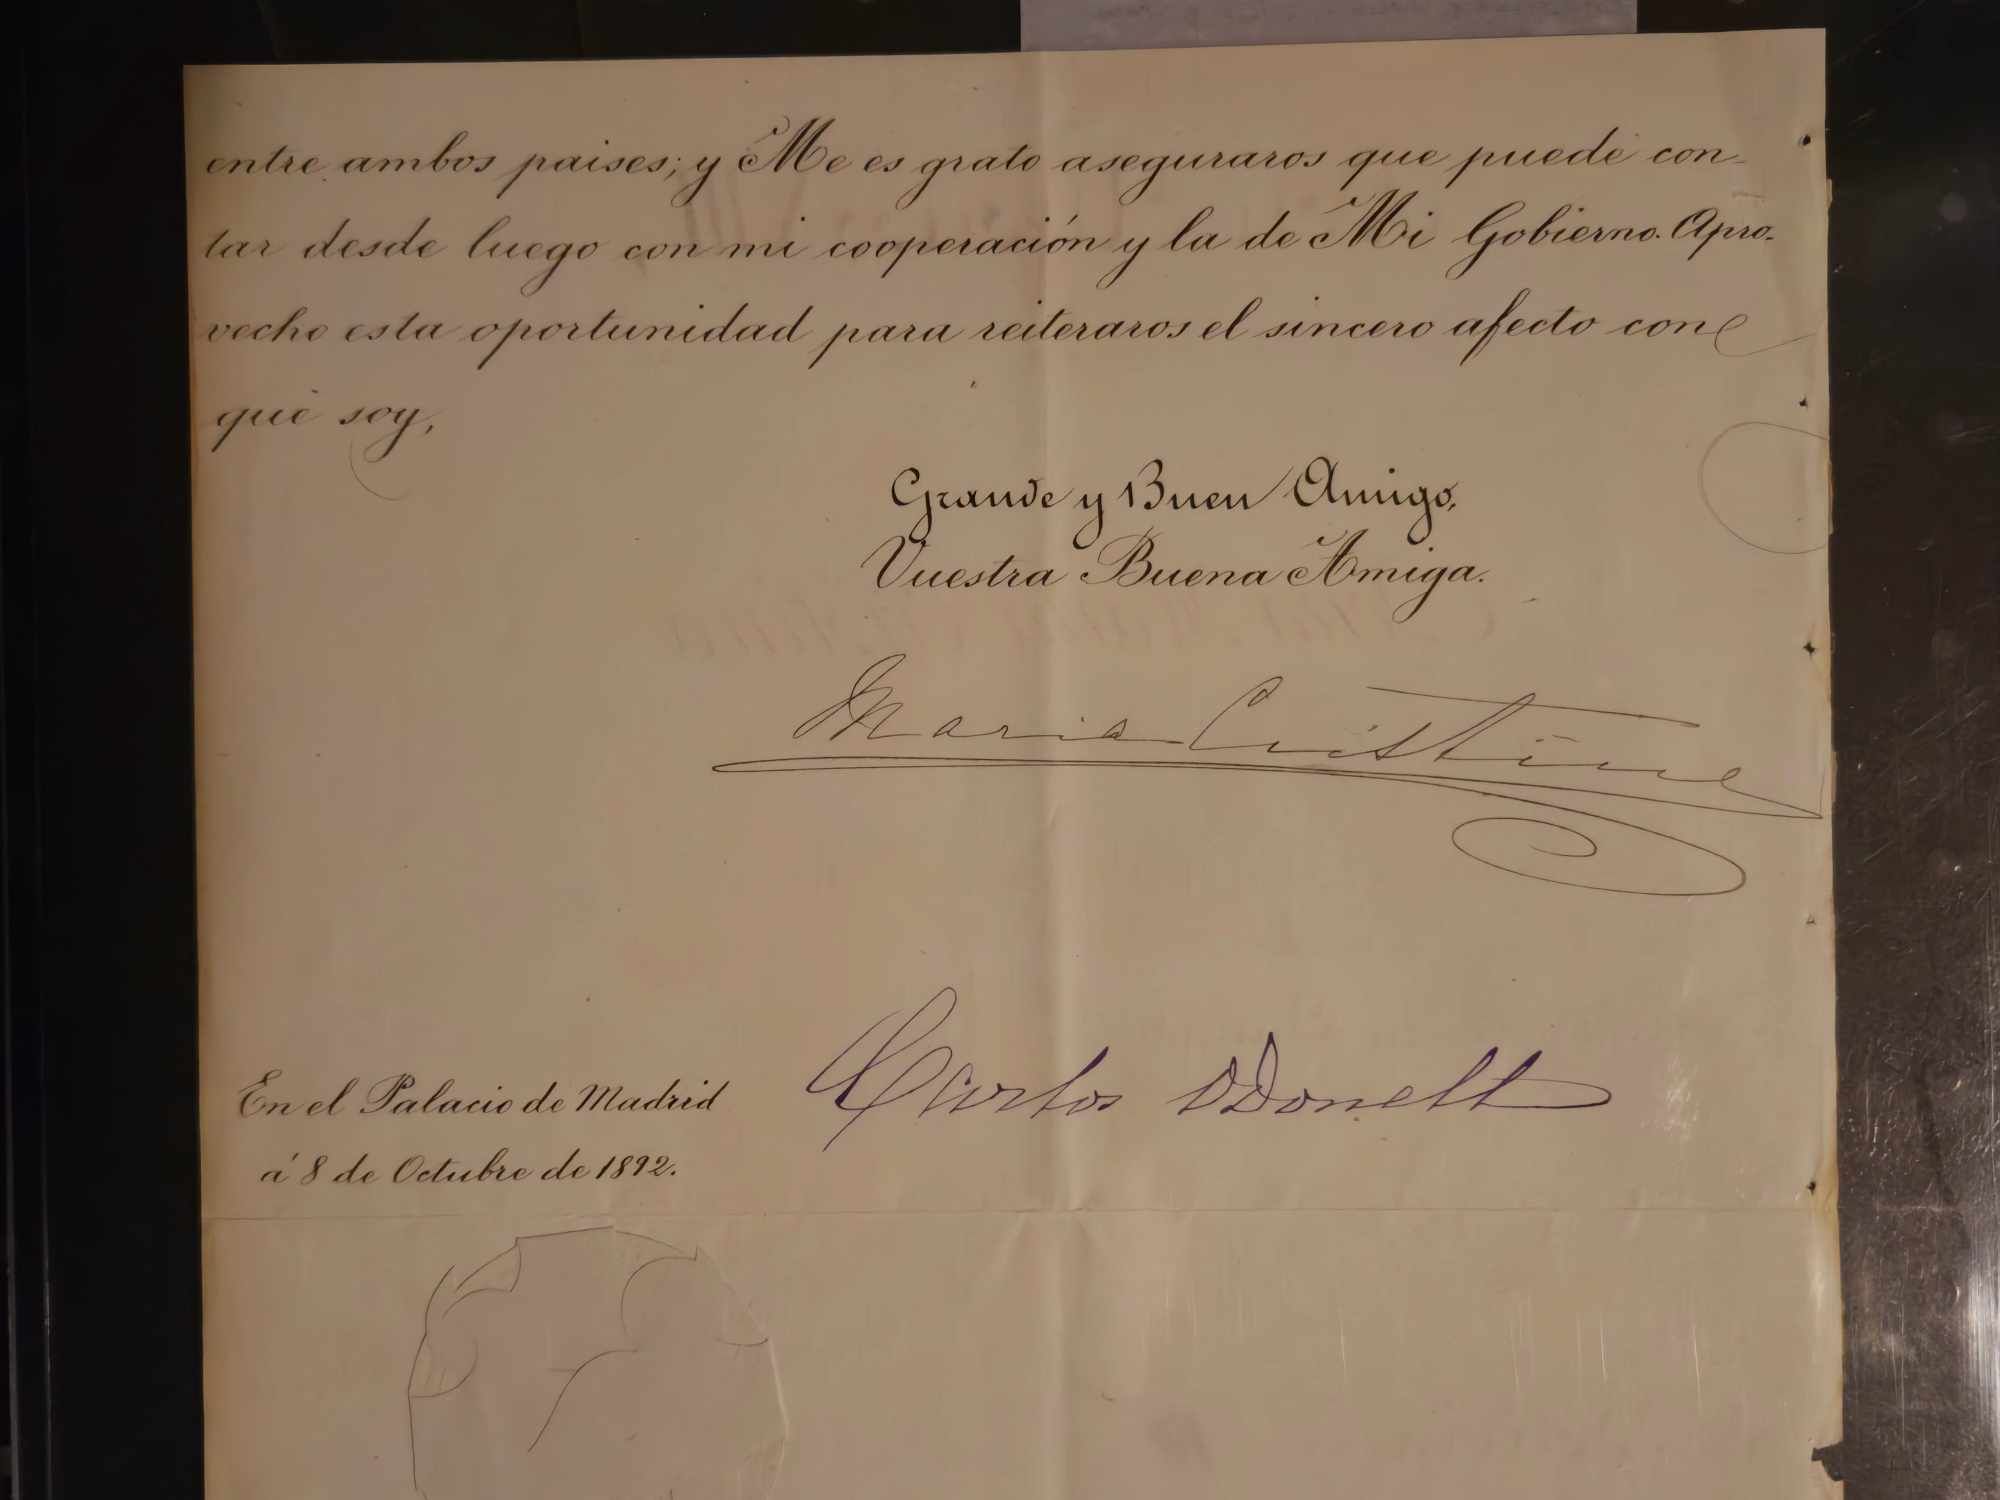 entre ambos paises; y Me es grato aseguraros que puede con-
tar desde luego con mi cooperación y la de Mi Gobierno. Apro-
vecho esta oportunidad para reiteraros el sincero afecto con
que soy,
Grande y Buen Amigo,
Vuestra Buena Amiga.
Maria Cristina
Carlos O'Donell
En el Palacio de Madrid
á 8 de Octubre de 1892.